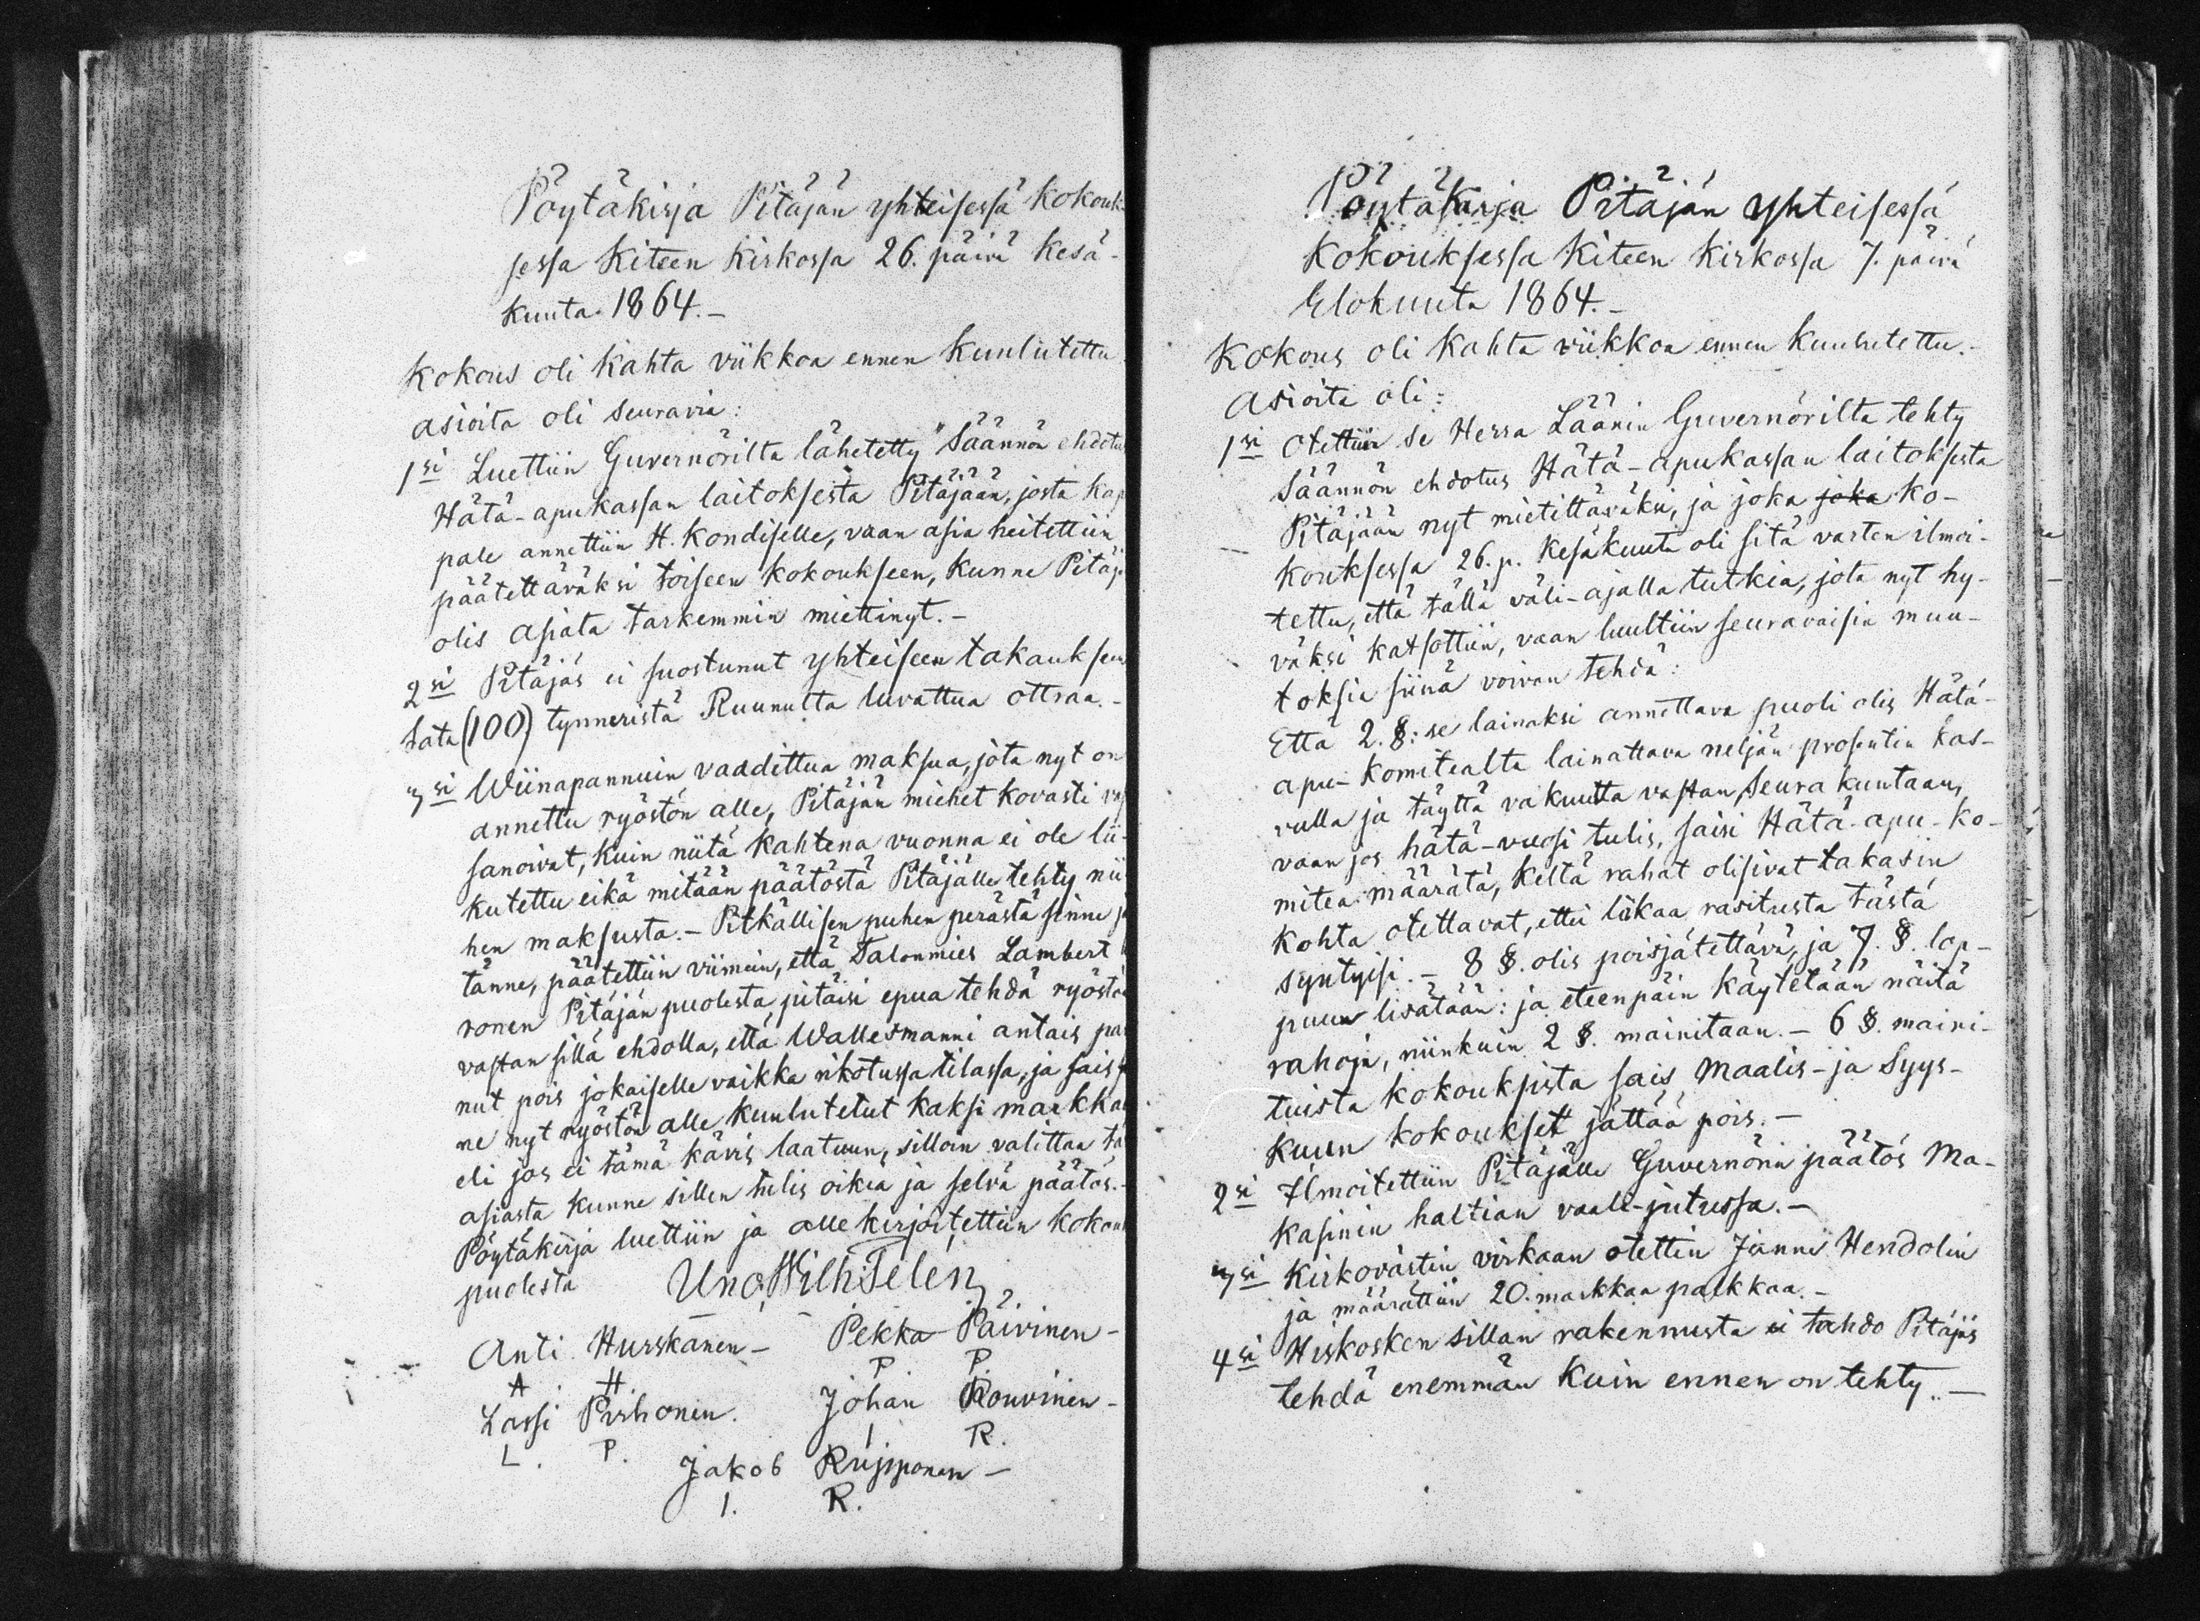 Pöytäkirja Pitäjän yhteisessä kokouk-
sessa Kiteen Kirkossa 26. päivä Kesä-
kuuta 1864.-
Kokous oli kahta viikkoa ennen kuulutettu
asioita oli seuravia:
1si Luettiin Guvernörilta lähetetty "Säännön ehdotu
Hätä-apukassan laitoksesta Pitäjään, josta kap
pale annettiin H. Kondiselle, vaan asia heitettiin
päätettäväksi toiseen kokoukseen, kunne Pitäj
olis asiata tarkemmin miettinyt.-
2si Pitäjäs ei suostunut yhteiseen takauksen
Sata (100) tynneristä Ruunulta luvattua ottraa.-
3si Wiinapannuin vaadittua maksua, jota nyt on
annettu ryöstön alle, Pitäjän miehet kovasti va
sanoivat, kuin niitä kahtena vuonna ei ole lii-
kutettu eikä mitään päätöstä Pitäjälle tehty nii
hen maksusta.- Pitkällisen puhen perästä sinne j
tänne, päätettiin viimein, että Talonmies Lambert
ronen Pitäjän puolesta, pitäisi epua tehdä ryöstö
vastan sillä ehdolla, että Wallesmanni antais pa
nut pois jokaiselle vaikka rikotussa tilassa, ja sais
ne nyt ryöstön alle kuulutetut kaksi markka
eli jos ei tämä kävis laatuun, silloin valittaa tä
asiasta kunne sillen tulis oikia ja selvä päätös.-
Pöytäkirja luettiin ja alle kirjoitettiin kokou
puolesta Uno Wilh: Telén
Anti Hurskanen- Pekka Päivinen-
A H. P P.
Lassi Pirhonen. Johan Rouvinen-
L. P. I R.
Jakob Riipponen-
I. R.
Pöytäkirja Pitäjän yhteisessä
kokouksessa Kiteen Kirkossa 7. päivä
Elokuuta 1864.-
Kokous oli kahta viikkoa ennen kuulutettu.-
Asioita oli:
1si Otettiin se Herra Läänin Guvernörilta tehty
Säännön ehdotus Hätä-apukassan laitoksesta
Pitäjään nyt mietittäväksi, ja joka joka ko-
kouksessa 26.p. Kesäkuuta oli sitä varten ilmoi-
tettu, että tällä väli-ajalla tutkia, jota nyt hy-
väksi katsottiin, vaan luultiin seuravaisia muu-
toksia siinä voivan tehdä:
Että 2.§: se lainaksi annettava puoli olis Hätä-
apu-komitealta lainattava neljän prosentin kas-
vulla ja täyttä vakuutta vastan Seurakuntaan,
vaan jos hätä-vuosi tulis, saisi Hätä-apu-ko-
mitea määrätä, keltä rahat olisivat takasin
kohta otettavat, ettei liikaa rasitusta tästä
syntyisi.- 8 §. olis poisjätettävä, ja 7.§. lop-
puun lisätään: ja eteenpäin käytetään näitä
rahoja, niinkuin 2 §. mainitaan.- 6 §. maini-
tuista kokouksista sais Maalis- ja Syys-
kuun kokoukset jättää pois.-
2si Ilmoitettiin Pitäjälle Guvernörin päätös Ma-
kasinin haltian vaali-jutussa.-
3si Kirkovästin virkaan otettin Janne Hendolin
ja määrättiin 20. markkaa palkkaa.-
4si Hiskosken sillan rakennusta ei tahdo Pitäjäs
tehdä enemmän kuin ennen on tehty.-